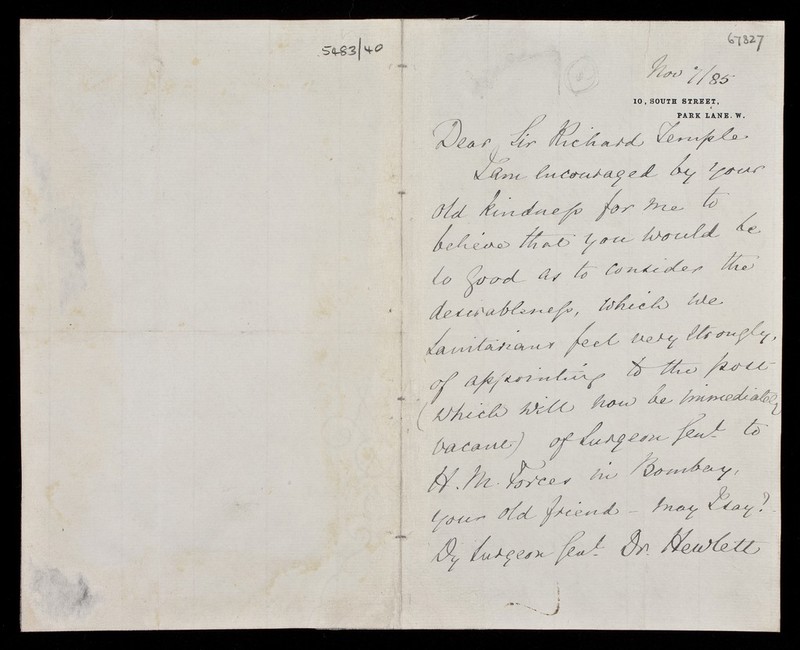 5483/40
67827
Nov 7/85
10, SOUTH STREET,
PARK LANE. W.
Dear Sir Richard Temple
I am encouraged by your
old kindness for me to
believe that you would be
so good as to consider the
desirableness, which we
Sanitarians feel very strongly,
of appointing to the post
(which will now be immediately
vacant) of Surgeon Genl. to
H. M. Forces in Bombay,
your old friend - may I say?
Dy Surgeon Genl. Dr. Hewlett